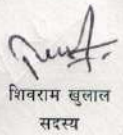 शिवराम खुलाल
सदस्य